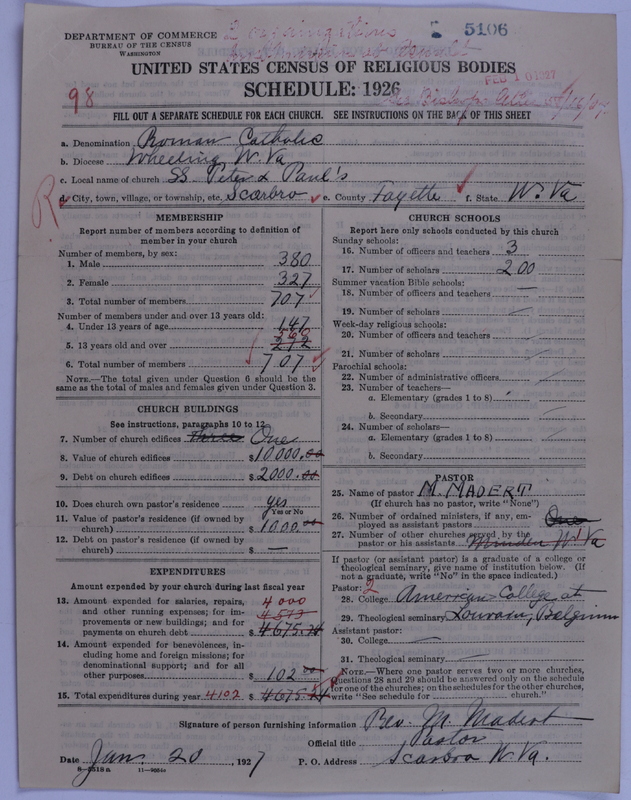 DEPARTMENT OF COMMERCE
BUREAU OF THE CENSUS
WASHINGTON
5106
UNITED STATES CENSUS OF RELIGIOUS BODIES
SCHEDULE: 1926
98
FILL OUT A SEPARATE SCHEDULE FOR EACH CHURCH. SEE INSTRUCTIONS ON THE BACK OF THIS SHEET
a. Denomination Roman Catholic
b. Diocese Wheeling W. Va
c. Local name of church SS Peter & Paul's
d. City, town, village, or township, etc. Scarbro e. County Fayette f. State W. Va
MEMBERSHIP
Report number of members according to definition of
member in your church
Number of members, by sex:
1. Male 380
2. Female 327
3. Total number of members 707
Number of members under and over 13 years old:
4. Under 13 years of age 147
560
5. 13 years old and over 272
6. Total number of members 707
NOTE.—The total given under Question 6 should be the
same as the total of males and females given under Question 3.
CHURCH BUILDINGS
See instructions, paragraphs 10 to 12
7. Number of church edifices Three One
8. Value of church edifices $10,000.00
9. Debt on church edifices $2000.00
10. Does church own pastor's residence yes
Yes or No
11. Value of pastor's residence (if owned by
church) $1000.00
12. Debt on pastor's residence (if owned by
church) $ —
EXPENDITURES
Amount expended by your church during last fiscal year
13. Amount expended for salaries, repairs,
and other running expenses; for im-
provements or new buildings; and for
payments on church debt 4000
$4675.
14. Amount expended for benevolences, in-
cluding home and foreign missions; for
denominational support; and for all
other purposes $102.00
15. Total expenditures during year 4102 $4675.
CHURCH SCHOOLS
Report here only schools conducted by this church
Sunday schools:
16. Number of officers and teachers 3
17. Number of scholars 200
Summer vacation Bible schools:
18. Number of officers and teachers —
19. Number of scholars
Week-day religious schools:
20. Number of officers and teachers
21. Number of scholars
Parochial schools:
22. Number of administrative officers
23. Number of teachers—
a. Elementary (grades 1 to 8)
b. Secondary
24. Number of scholars—
a. Elementary (grades 1 to 8)
b. Secondary
PASTOR
25. Name of pastor M. MADERT
(If church has no pastor, write "None")
26. Number of ordained ministers, if any, em-
ployed as assistant pastors One
27. Number of other churches served by the
pastor or his assistants Minden W. Va
If pastor (or assistant pastor) is a graduate of a college or
theological seminary, give name of institution below. (If
not a graduate, write "No" in the space indicated.)
Pastor: 2
28. College American College at
29. Theological seminary Louvain, Belgium
Assistant pastor:
30. College
31. Theological seminary
NOTE.—Where one pastor serves two or more churches,
questions 28 and 29 should be answered only on the schedule
for one of the churches; on the schedules for the other churches,
write "See schedule for church."
Signature of person furnishing information Rev. M. Madert
Official title Pastor
Date Jan. 20, 1927 P. O. Address Scarbro W. Va.
8—5518a 11—9054